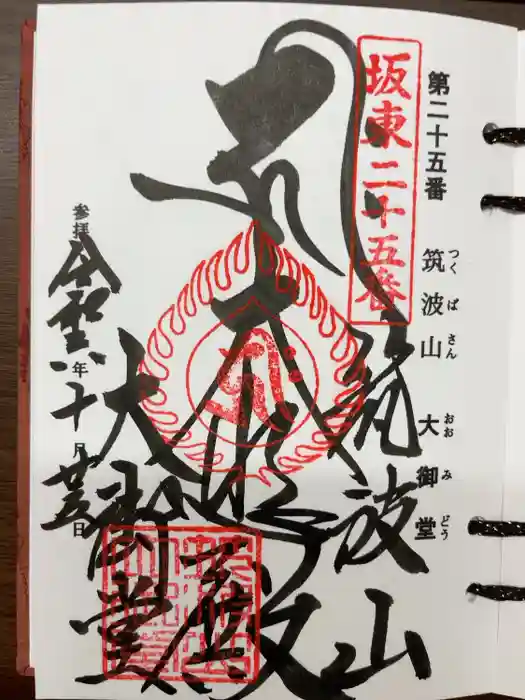 第二十五番 筑波山 大御堂
つくばさん おおみどう
坂東二十五番
筑波山
大悲殿
大御堂
参拝 令和六年十月廿五日